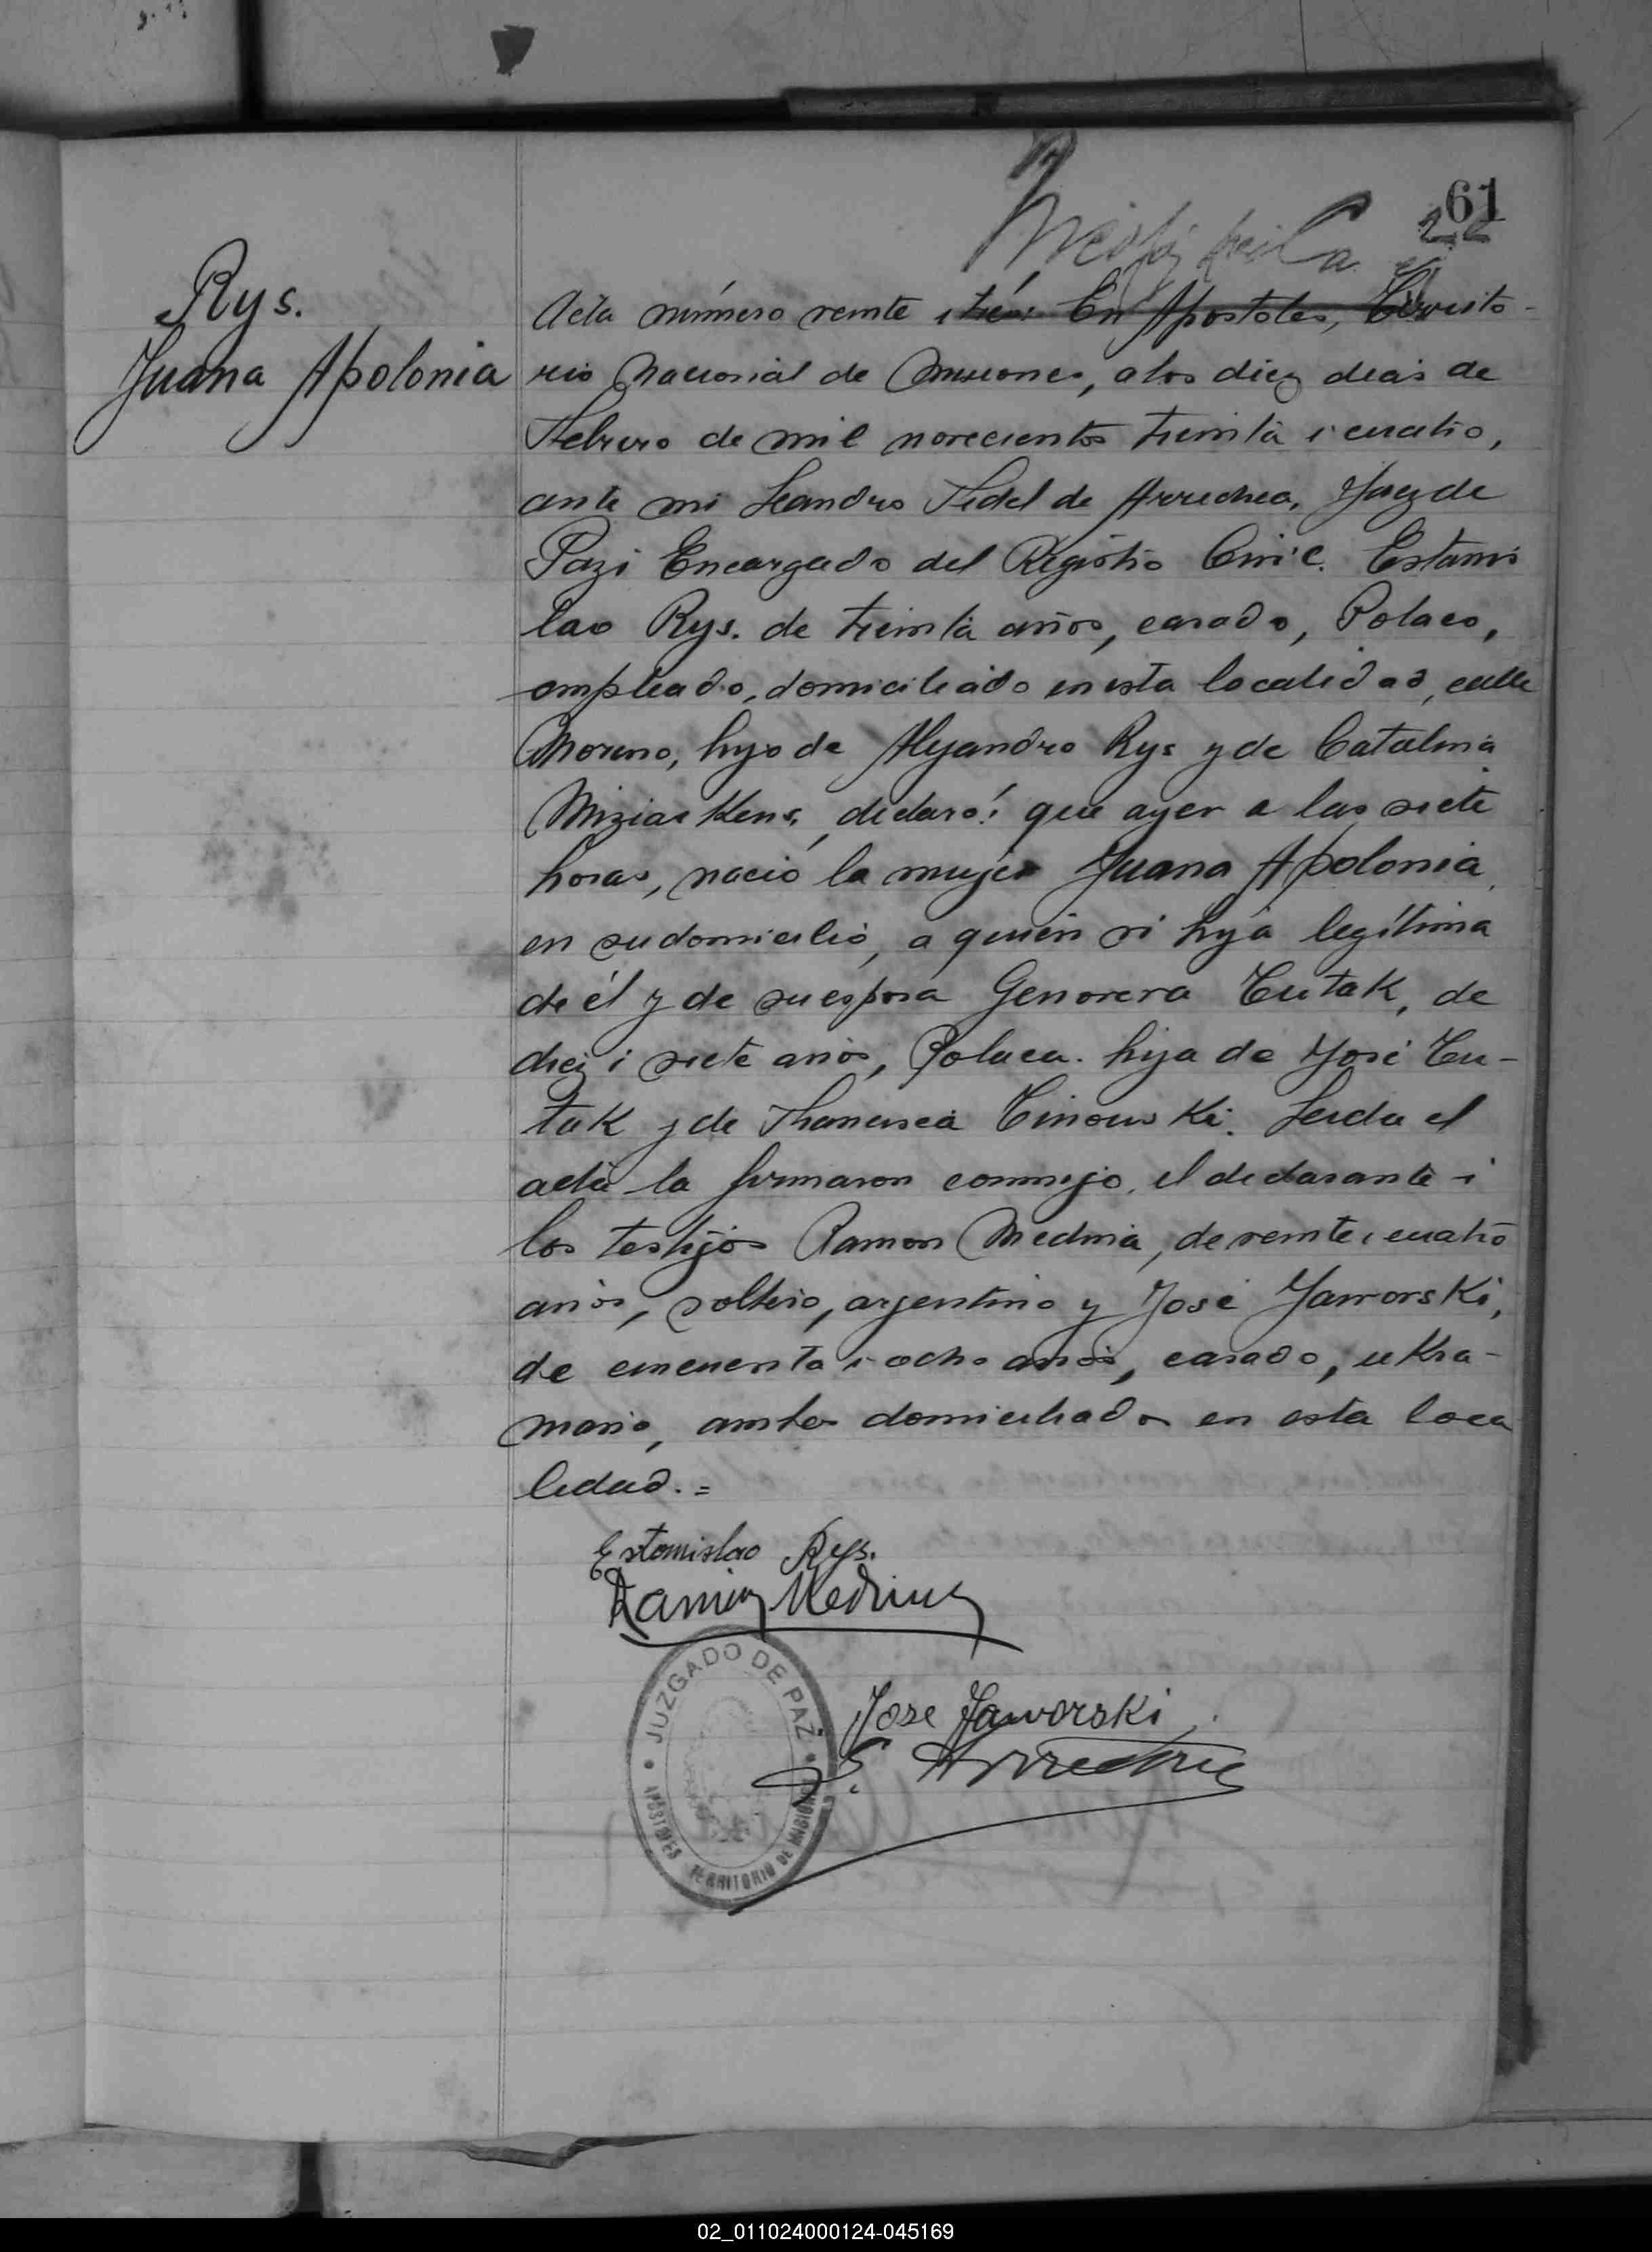 61
22
Rys.
Juana Apolonia
Acta número veinte i tres: En Apostoles, Territo-
rio Nacional de Misiones, a los diez dias de
Febrero de mil novecientos treinta i cuatro,
ante mi Leandro Fidel de Arrechea, Juez de
Paz i Encargado del Registro Civil. Estanis
lao Rys. de treinta años, casado, Polaco,
empleado, domiciliado en esta localidad, calle
Moreno, hijo de Alejandro Rys y de Catalina
declaró: que ayer a las siete
horas, nació la mujer Juana Apolonia,
en su domicilio, a quien vi hija legítima
de él y de su esposa Genoveva Tutak, de
diez i siete años, Polaca. hija de José Tu-
tak y de Francisca Tinowski. Leida el
acta la firmaron conmigo, el declarante i
los testigos Ramon Medina, de veinte i cuatro
años, soltero, argentino y José Jaworski,
de cincuenta i ocho años, casado, ukra-
niano, ambos domiciliados en esta loca
lidad.=
Estanislao Rys.
Ramón Medina
JUZGADO DE PAZ
APOSTOLES TERRITORIO DE MISIONES
Jose Jaworski
L. Arrechea
02_011024000124-045169